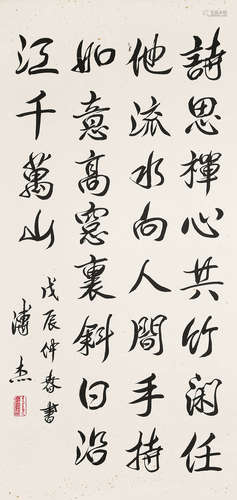 詩思禪心共竹閑任
他流水向人間手持
如意高窓裏斜日沿
江千萬山
戊辰仲春書
溥杰